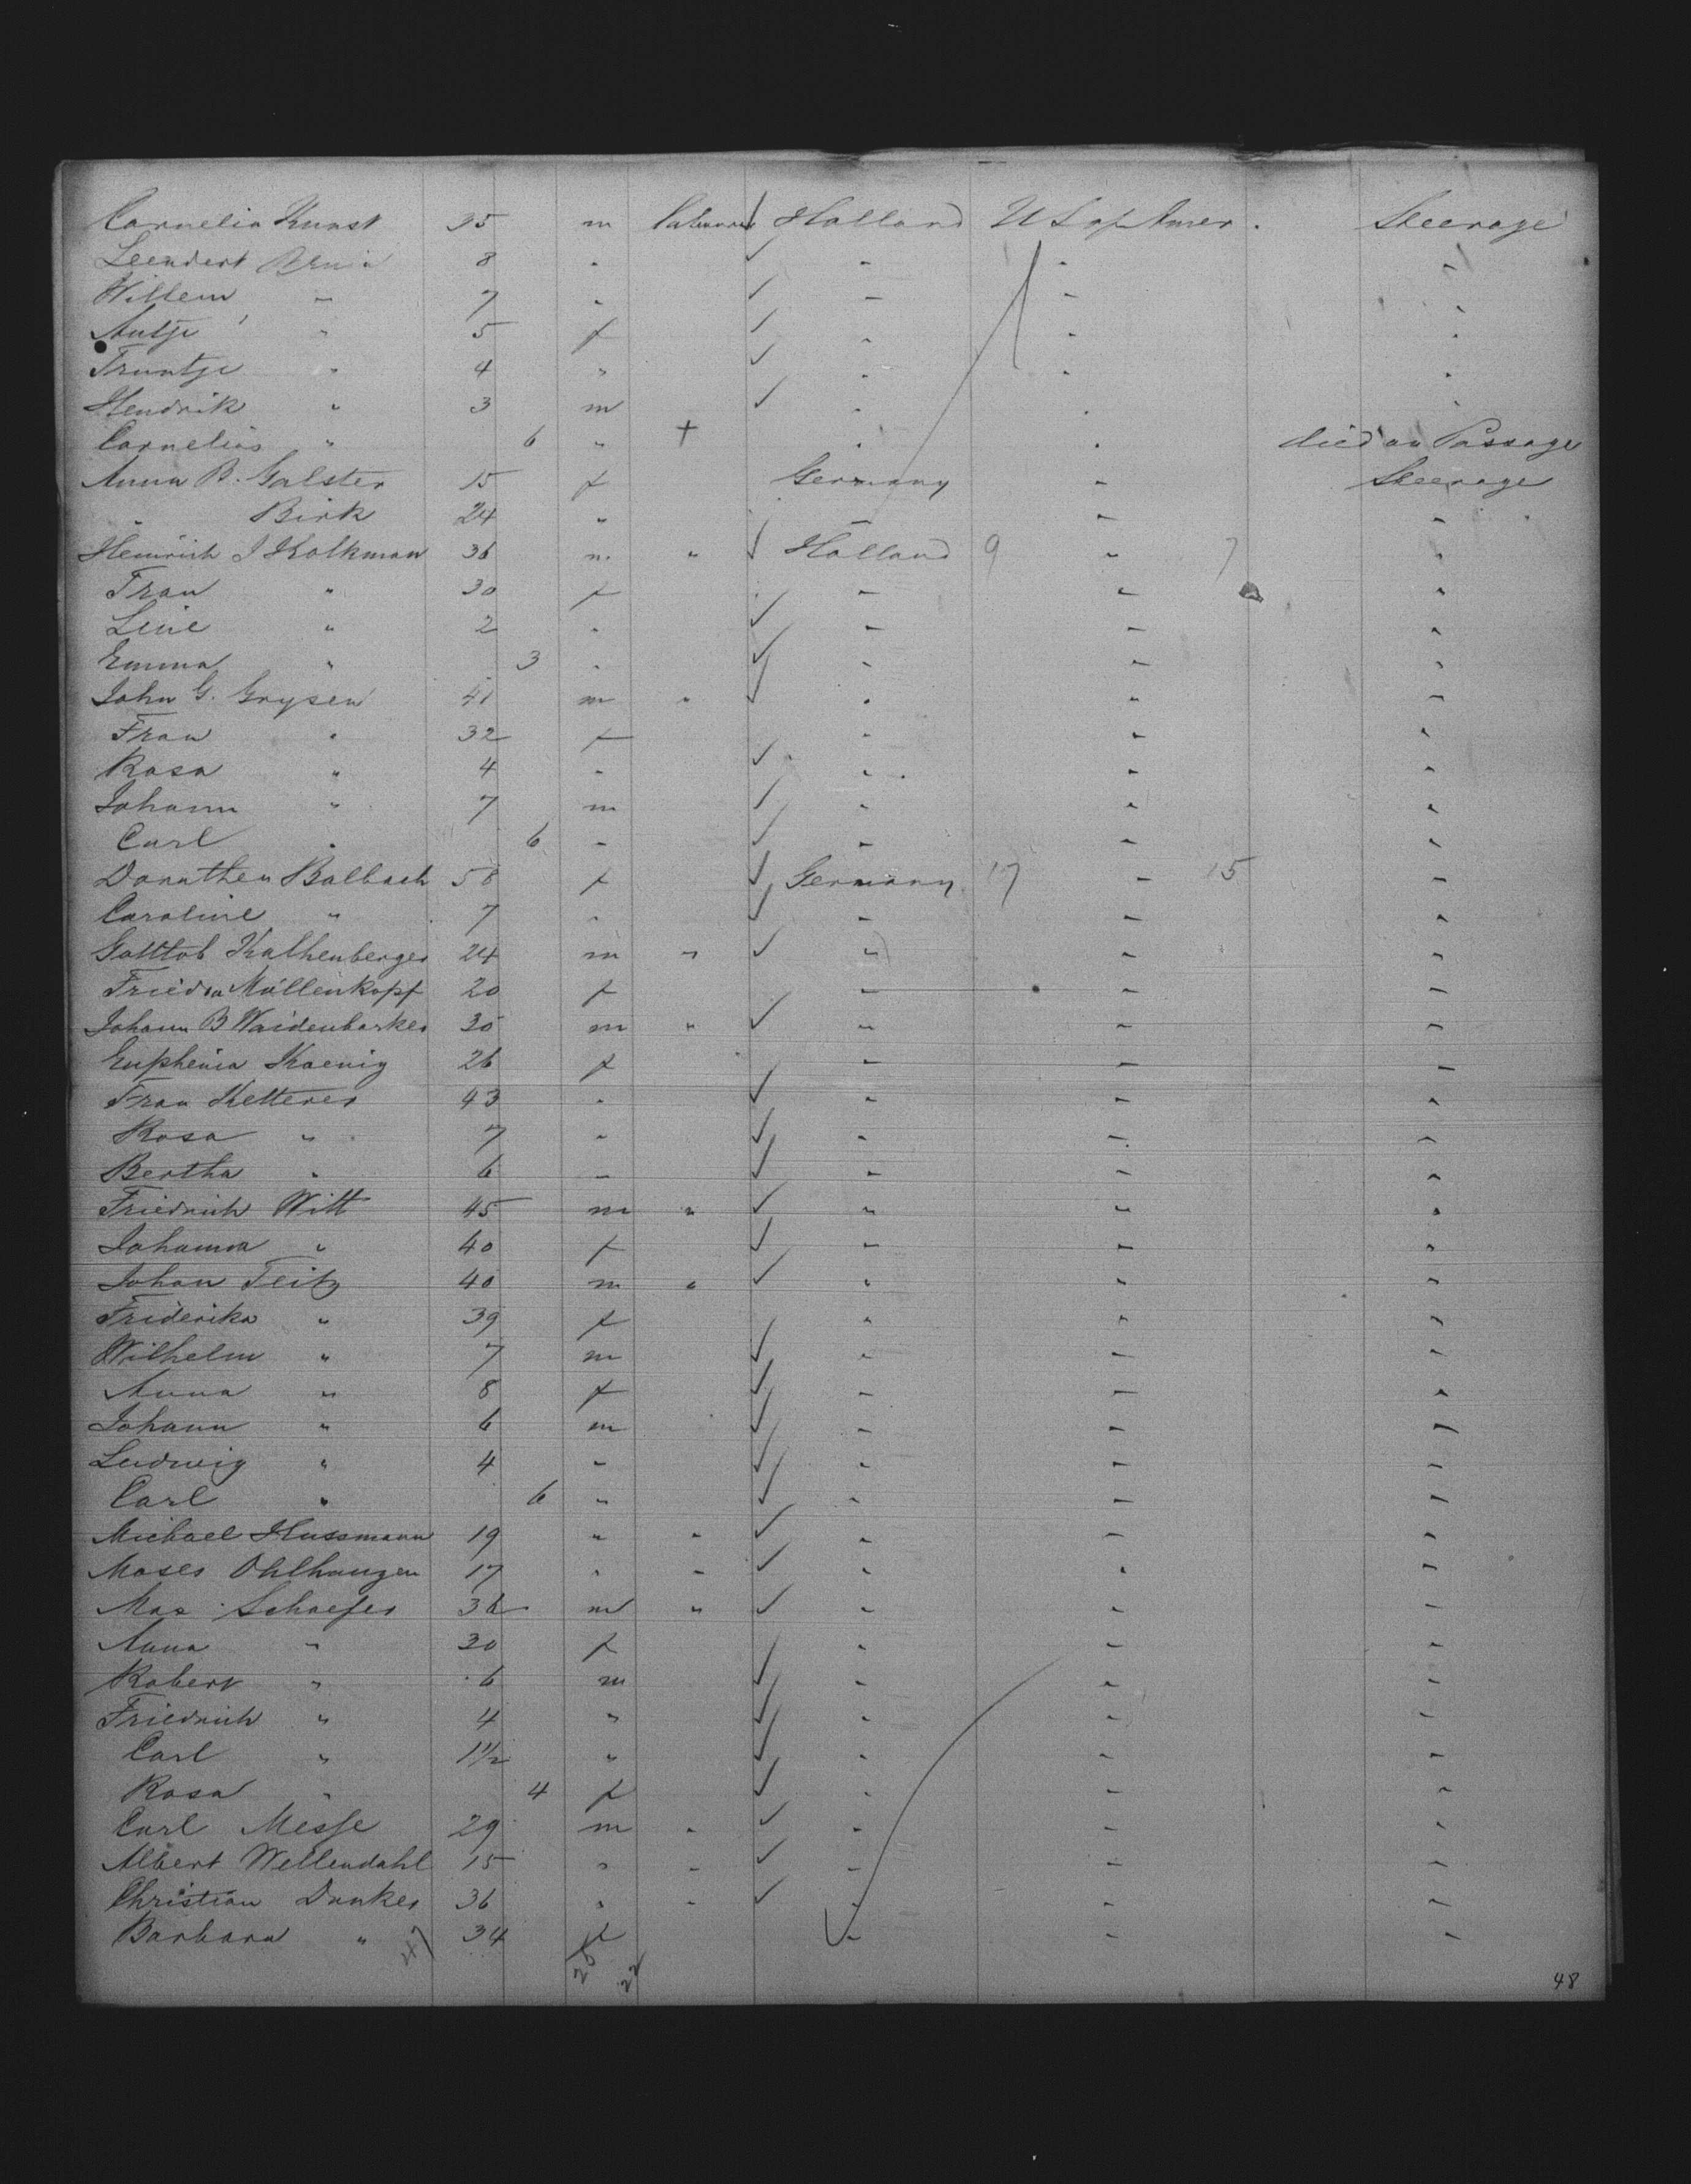 Cornelia Kunst 25 m Labourer Holland U S of Amer. Steerage
Leendert 8 " " " "
Willem " 7 " " " "
Antje " 5 f " " "
Truntje " 4 " " " "
Hendrik " 3 m " " "
Cornelius " 6 " + " " died on Passage
Anna B. Galster 15 f Germany " Steerage
" Birk 24 " " " "
Heinrich J Kolkman 36 m " Holland 9 " 7 "
Frau " 30 f " " "
Line " 2 " " " "
Emma " 3 " " " "
John G. Grysen 41 m " " " "
Frau " 32 f " " "
Rosa " 4 " " " "
Johann " 7 m " " "
Carl " 6 " " " "
Dorothea Balbach 58 f Germany 17 " 15 "
Caroline " 7 " " " "
Gottlob Kalhenberger 24 m " " " "
Frieda Müllenkopf 20 f " " "
Johann B Waidenbarker 35 m " " " "
Euphemia Koenig 26 f " " "
Frau Ketterer 43 " " " "
Rosa " 7 " " " "
Bertha " 6 " " " "
Friedrich Witt 45 m " " " "
Johanna " 40 f " " "
Johan Teitz 40 m " " " "
Friderika " 39 f " " "
Wilhelm " 7 m " " "
Anna " 8 f " " "
Johann " 6 m " " "
Ludwig " 4 " " " "
Carl " 6 " " " "
Michael Hussmann 19 " " " " "
Moses Ohlhauzen 17 " " " " "
Max Schaefer 36 m " " " "
Anna " 30 f " " "
Robert " 6 m " " "
Friedrich " 4 " " " "
Carl " 1 1/2 " " " "
Rosa " 4 f " " "
Carl Messe 29 m " " " "
Albert Wellendahl 15 " " " " "
Christian Dunker 36 " " " " "
Barbara " 34 f " " "
47 25 22
48